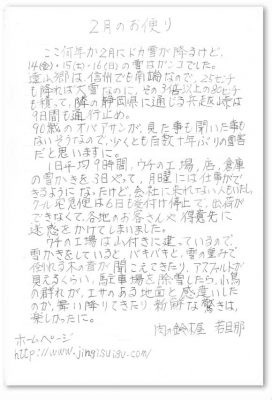 2月のお便り
ここ何年か2月にドカ雪が降るけど、
14(金)・15(土)・16(日)の雪はガンコでした。
遠山郷は信州でも南端なので、25センチ
も降れば大雪なのに、その3倍以上の80センチ
も積って、隣の静岡県に通じる兵越峠は
9日間も通行止め。
90歳のオバアサンが、見た事も聞いた事も
ないそうなので、少くとも百数十年ぶりの雪害
だと思いますに。
1日平均9時間、ウチの工場、店、倉庫
の雪かきを3日やって、月曜には仕事がで
きるようになったけど、会社に来れない人もいたし、
クール宅急便は6日も受け付け停止で、出荷が
できなくて、各地のお客さんや得意先に
迷惑をかけてしまいました。
ウチの工場は山付きに建っているので、
雪かきをしていると、バキバキと、雪の重みで
倒れる木の音が聞こえてきたり、アスファルトが
見えるくらい、駐車場を除雪したら、小鳥
の群れが、エサのある地面と感違いした
のか、舞い降りてきたり新鮮な驚きは、
楽しかったに。
肉の鈴木屋 若旦那
ホームページ
http://www.jingisuigu.com/